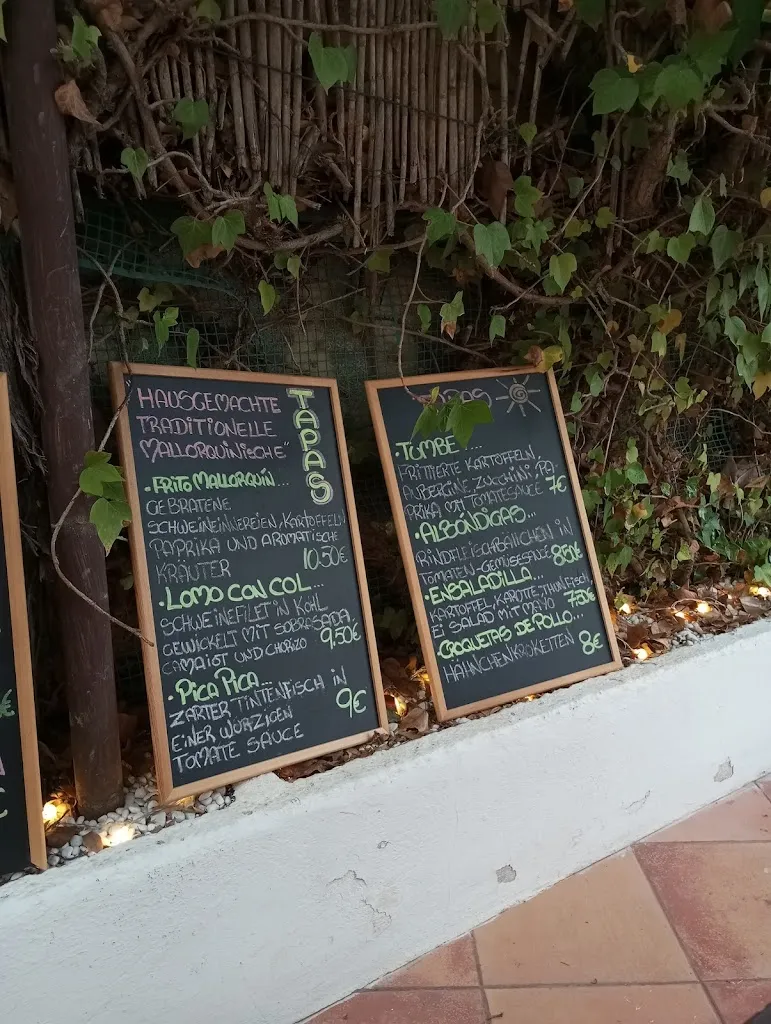 HAUSGEMACHTE
TRADITIONELLE
MALLORQUINISCHE"
TAPAS
·FRITO MALLORQUÍN...
GEBRATENE
SCHWEINEINNEREIEN, KARTOFFELN
PAPRIKA UND AROMATISCHE
KRÄUTER 10.50€
·LOMO CON COL...
SCHWEINEFILET IN KOHL
GEWICKELT MIT SOBRASADA,
CAMAIOT UND CHORIZO 9,50€
·PICA PICA...
ZARTER TINTENFISCH IN
EINER WÜRZIGEN 9€
TOMATE SAUCE
TAPAS
·TUMBE...
FRITTIERTE KARTOFFELN,
AUBERGINE, ZUCCHINI, PA-
PRIKA MIT TOMATESAUCE 7€
·ALBÓNDIGAS...
RINDFLEISCHBÄLLCHEN IN
TOMATEN-GEMÜSESAUCE 8,50€
·ENSALADILLA...
KARTOFFEL, KAROTTE, THUNFISCH,
EI SALAD MIT MAYO 7,50€
·CROQUETAS DE POLLO...
HÄHNCHENKROKETTEN 8€